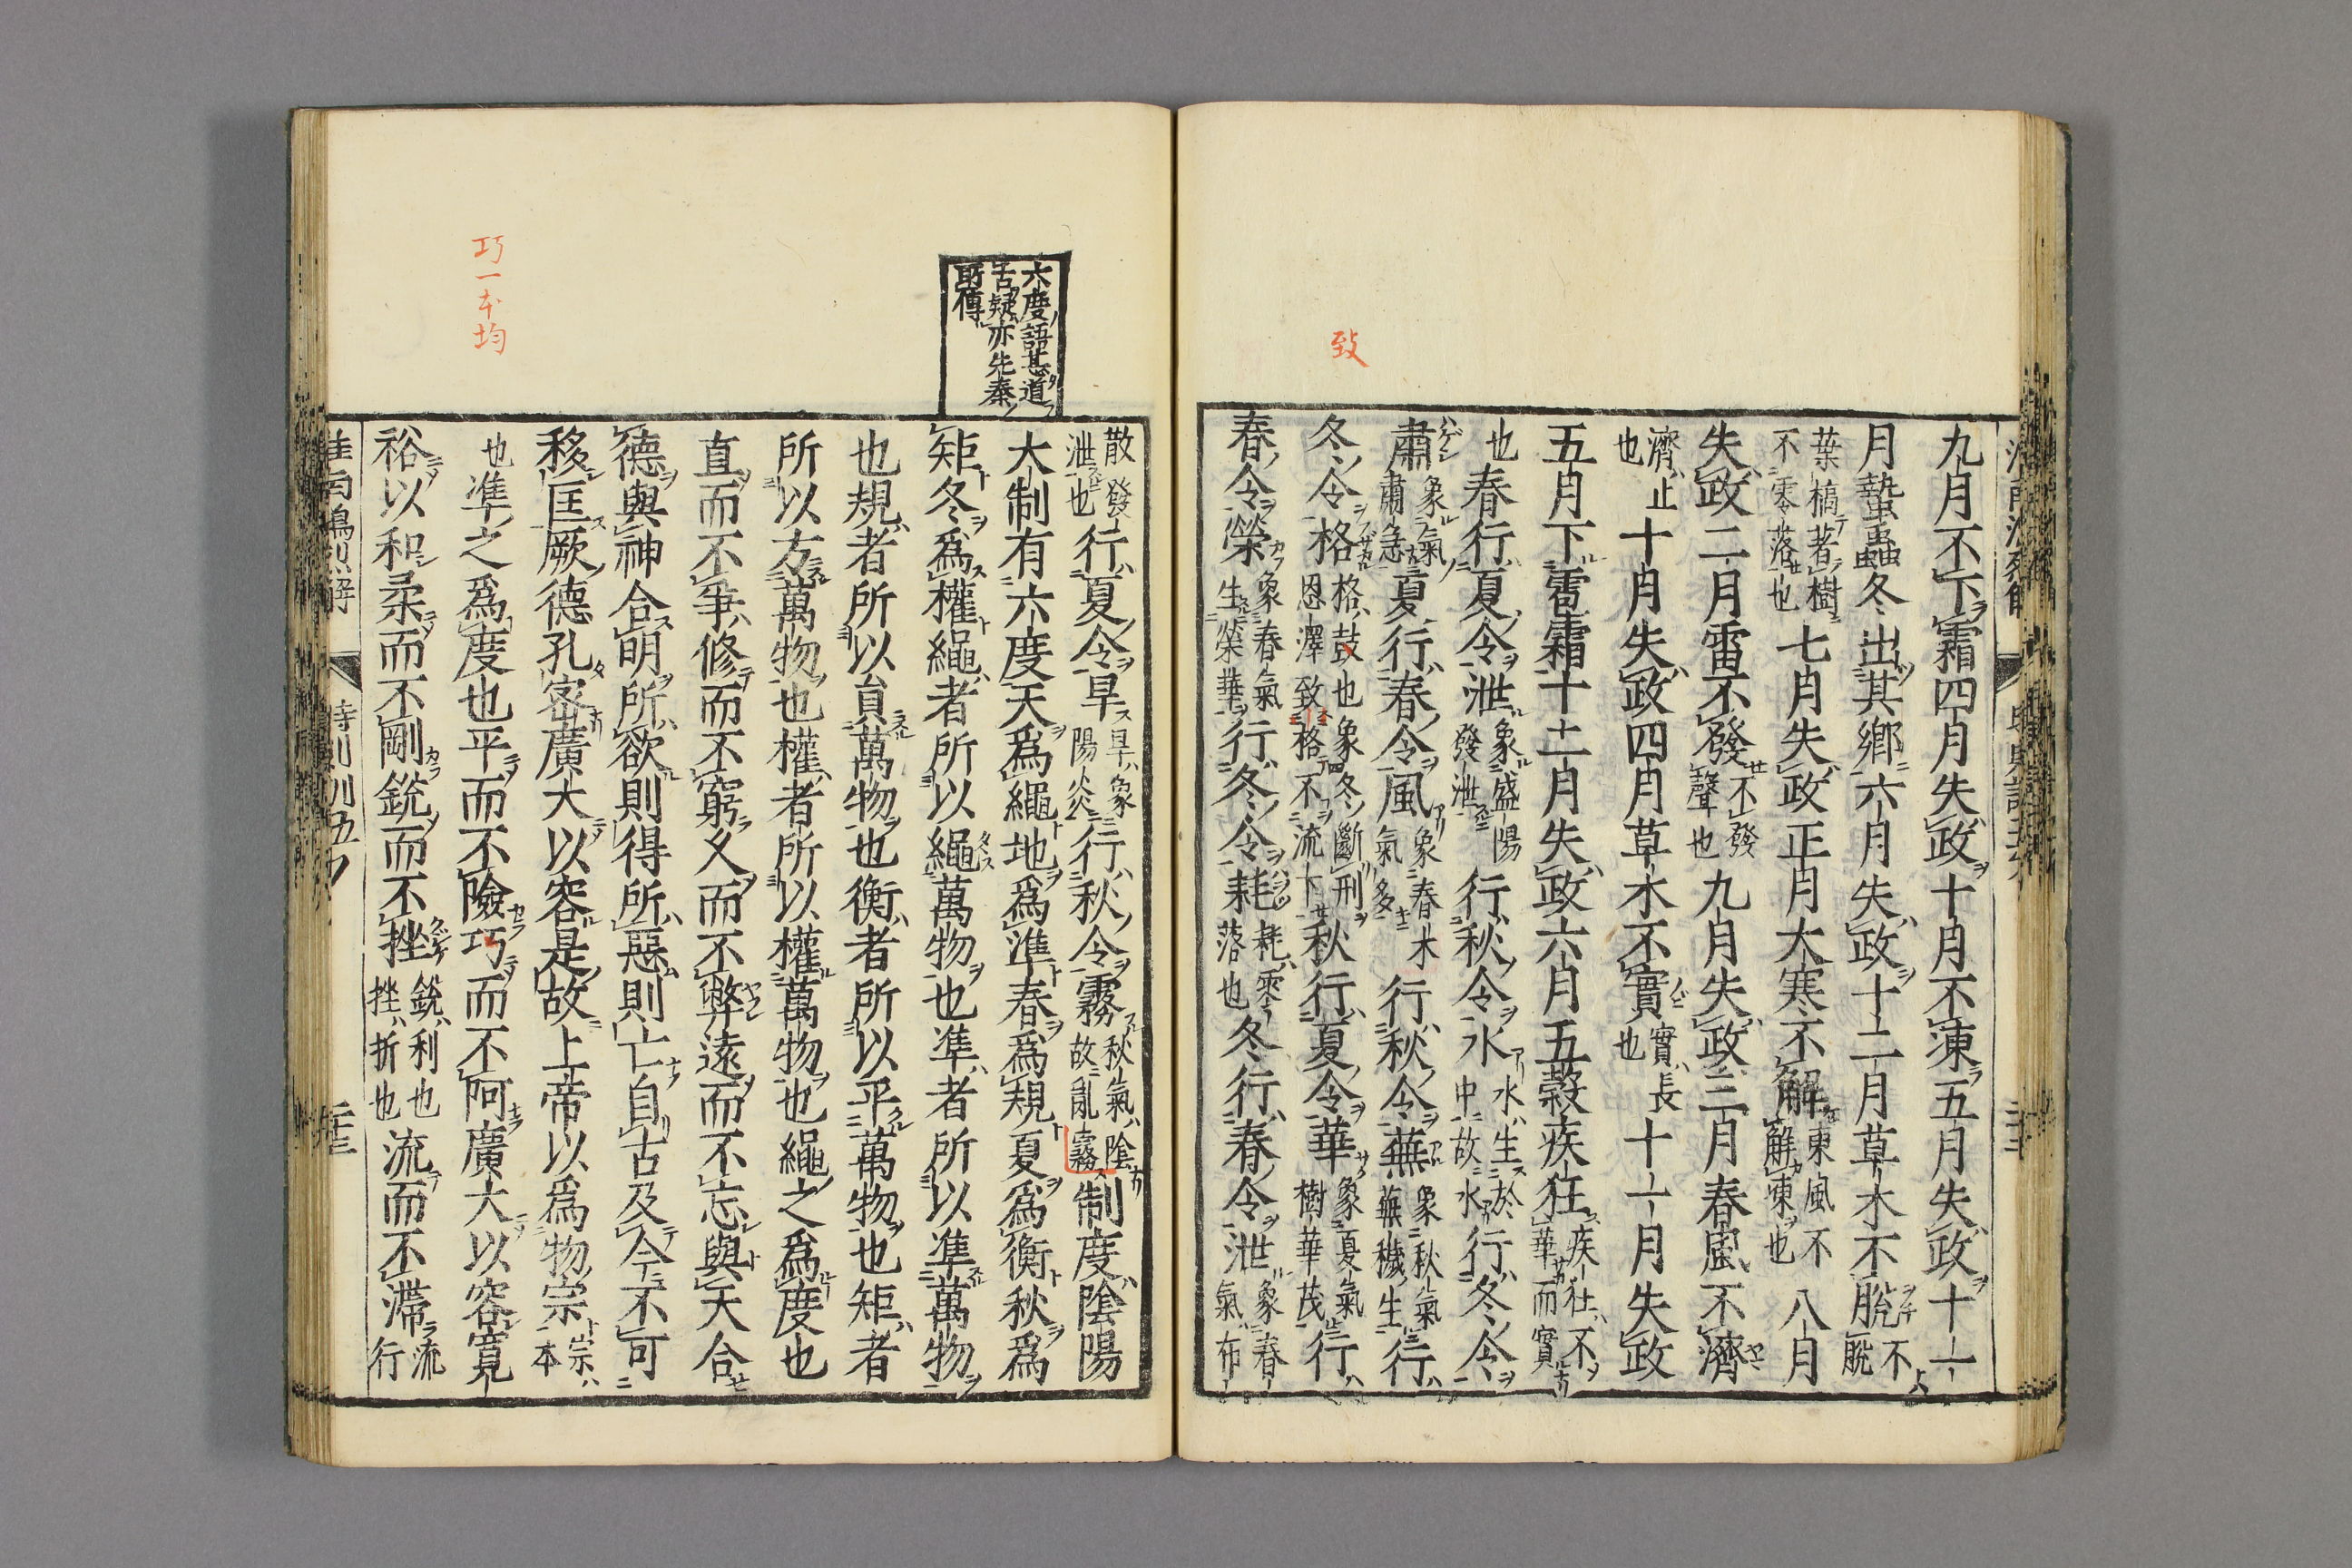 九月不下霜四月失政十月不凍五月失政十一
月蟄蟲冬出其郷六月失政十二月草木不脫不脫
葉槁著樹不零落也七月失政正月大寒不解東風不解凍也八月
失政二月雷不發不發聲也九月失政三月春風不濟
濟止也十月失政四月草木不實實長也十一月失政
五月下雹霜十二月失政六月五穀疾狂疾狂不華而實
也春行夏令泄象盛陽發泄行秋令水水生於申故水行冬令
肅象氣肅急夏行春令風象春木氣多行秋令蕪象秋氣蕪穢生行
冬令格格䜴也象冬斷刑恩澤致格不流下秋行夏令華象夏氣樹華茂行
春令榮象春氣生榮華行冬令耗耗零落也冬行春令泄象春氣布
致
散發泄也行夏令旱旱象陽炎行秋令霧秋氣陰故亂霧制度陰陽
大制有六度天爲繩地爲準春爲規夏爲衡秋爲
矩冬爲權繩者所以繩萬物也準者所以準萬物
也規者所以員萬物也衡者所以平萬物也矩者
所以方萬物也權者所以權萬物也繩之爲度也
直而不爭修而不窮久而不弊遠而不忘與天合
德與神合明所欲則得所惡則亡自古及今不可
移匡厥德孔密廣大以容是故上帝以爲物宗宗本
也準之爲度也平而不險巧而不阿廣大以容寬
裕以和柔而不剛銳而不挫銳利也挫折也流而不滯流行
六度語甚道
古疑亦先秦
所傳
巧一本均
時則訓五